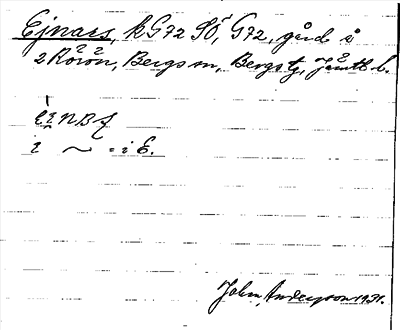 Ejnars, k G72 SÖ, G72, gård å
2 Rörön, Bergs sn, Bergs tg, Jämtl. l.
i ~ = i E.
John Anderson 1931.